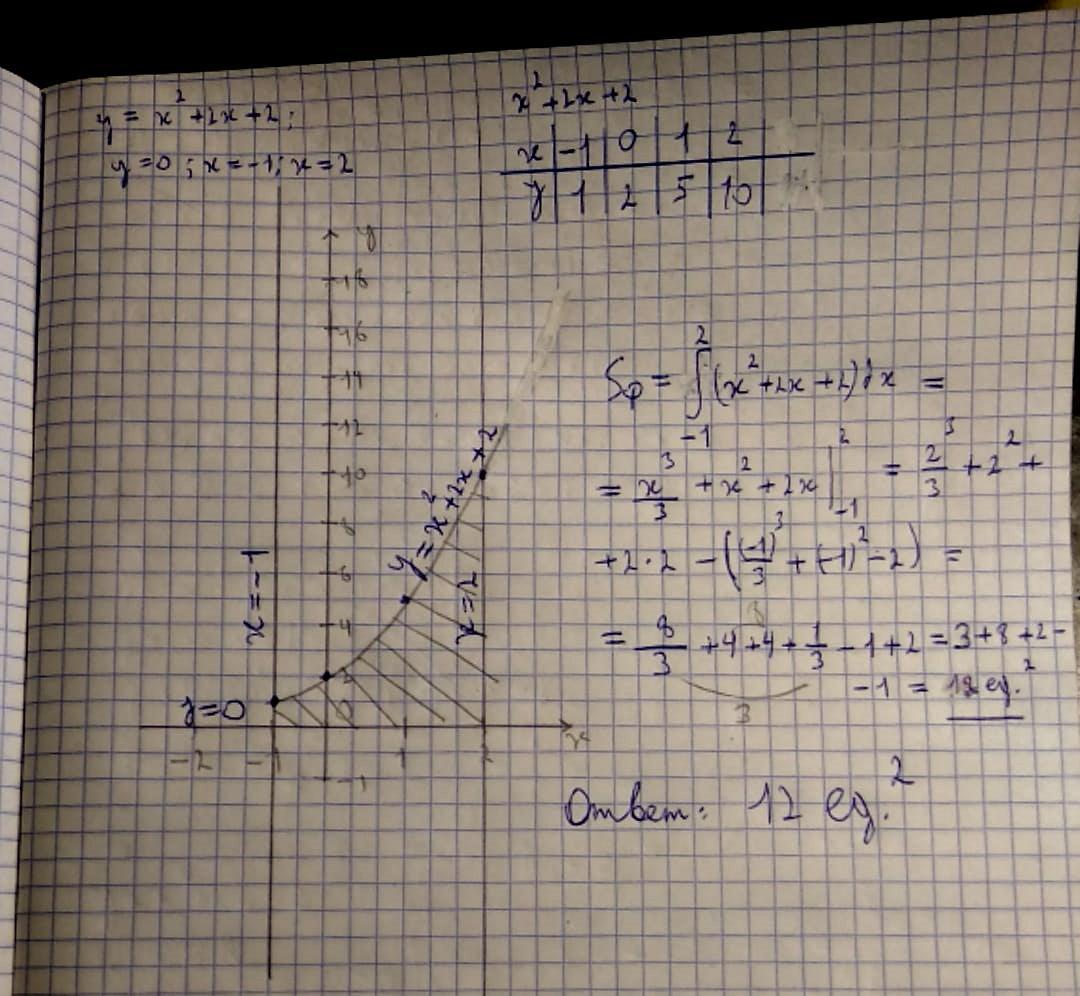 y = x² + 2x + 2;
y = 0; x = -1; x = 2
x² + 2x + 2
x -1 0 1 2
y 1 2 5 10
y
18
16
14
12
10
8
6
4
2
0
-1
-2 -1 1 2 x
x = -1
y = x² + 2x + 2
x = 2
y = 0
Sф = ∫₋₁² (x² + 2x + 2) dx =
= x³/3 + x² + 2x |₋₁² = 2³/3 + 2² +
+ 2·2 - ((-1)³/3 + (-1)² - 2) =
= 8/3 + 4 + 4 + 1/3 - 1 + 2 = 3 + 8 + 2 -
- 1 = 12 ед.²
3
Ответ: 12 ед.²